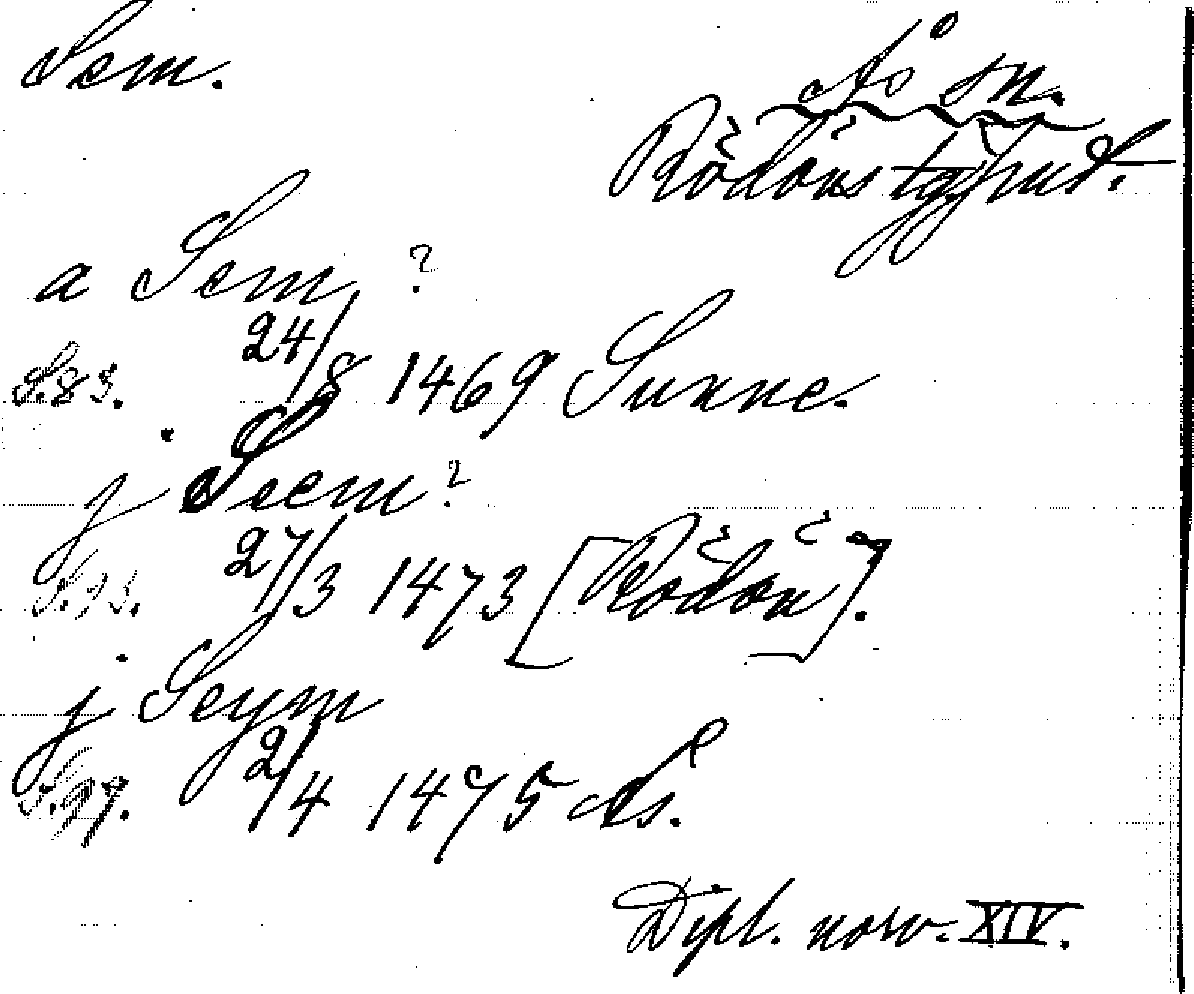 Sem.
Ås sn.
Rödöns tg, Jmtl.
a Sem ?
S.83. 24/8 1469 Sunne.
j Seem ?
S.93. 27/3 1473 [Rödön].
j Seym
S.97. 2/4 1475 Ås.
Dipl. norv. XIV.